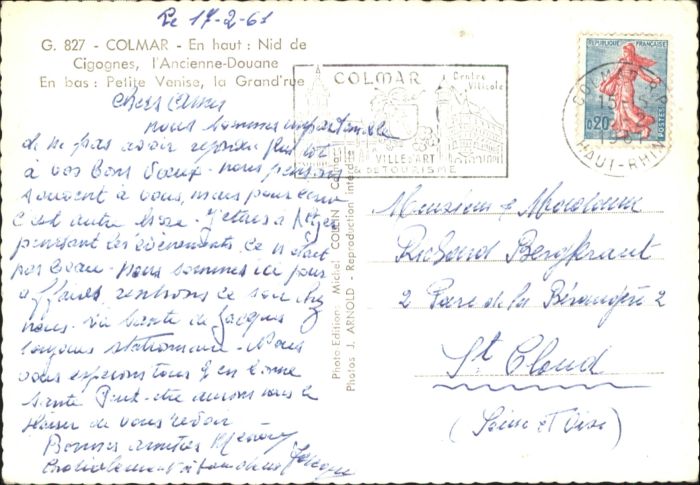 Le 17-2-61
G. 827 - COLMAR - En haut : Nid de
Cigognes, l'Ancienne-Douane
En bas : Petite Venise, la Grand'rue
Chers Amis
nous sommes impardonnable
de ne pas avoir repondu plus tot
à vos bons voeux - nous pensons
souvent à vous, mais pour ecrire
c'est autre chose - J'étais à
pendant les évènements ce n'était
pas beau - Nous sommes ici pour
affaires rentrons ce soir chez
nous - la santé de Jacques
toujours stationnaire - Nous
vous espérons tous en bonne
santé Peut-etre aurons nous le
plaisir de vous revoir
Bonnes amitiés
Cordialement
COLMAR
Centre
Viticole
VILLE D'ART
& DE TOURISME
REPUBLIQUE FRANÇAISE
0,20
POSTES
COLMAR R.P.
15
1961
HAUT-RHIN
Photo Edition Michel COLLIN Colmar
Photos J. ARNOLD - Reproduction interdite
Monsieur & Madame
Bergkraut
2 Parc de la Bérangère 2
St Cloud
(Seine et Oise)